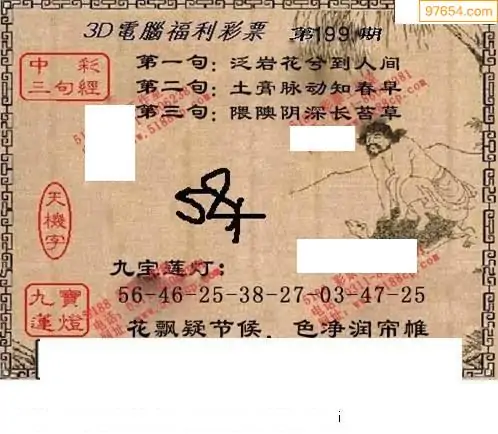 97654.com
3D電腦福利彩票 第199期
中彩三句經
第一句：泛岩花兮到人间
第二句：土膏脉动知春早
第三句：隈隩阴深长苔草
天機字
九宝莲灯：
九寶蓮燈
56-46-25-38-27-03-47-25
花飘疑节候，色净润帘帷
i